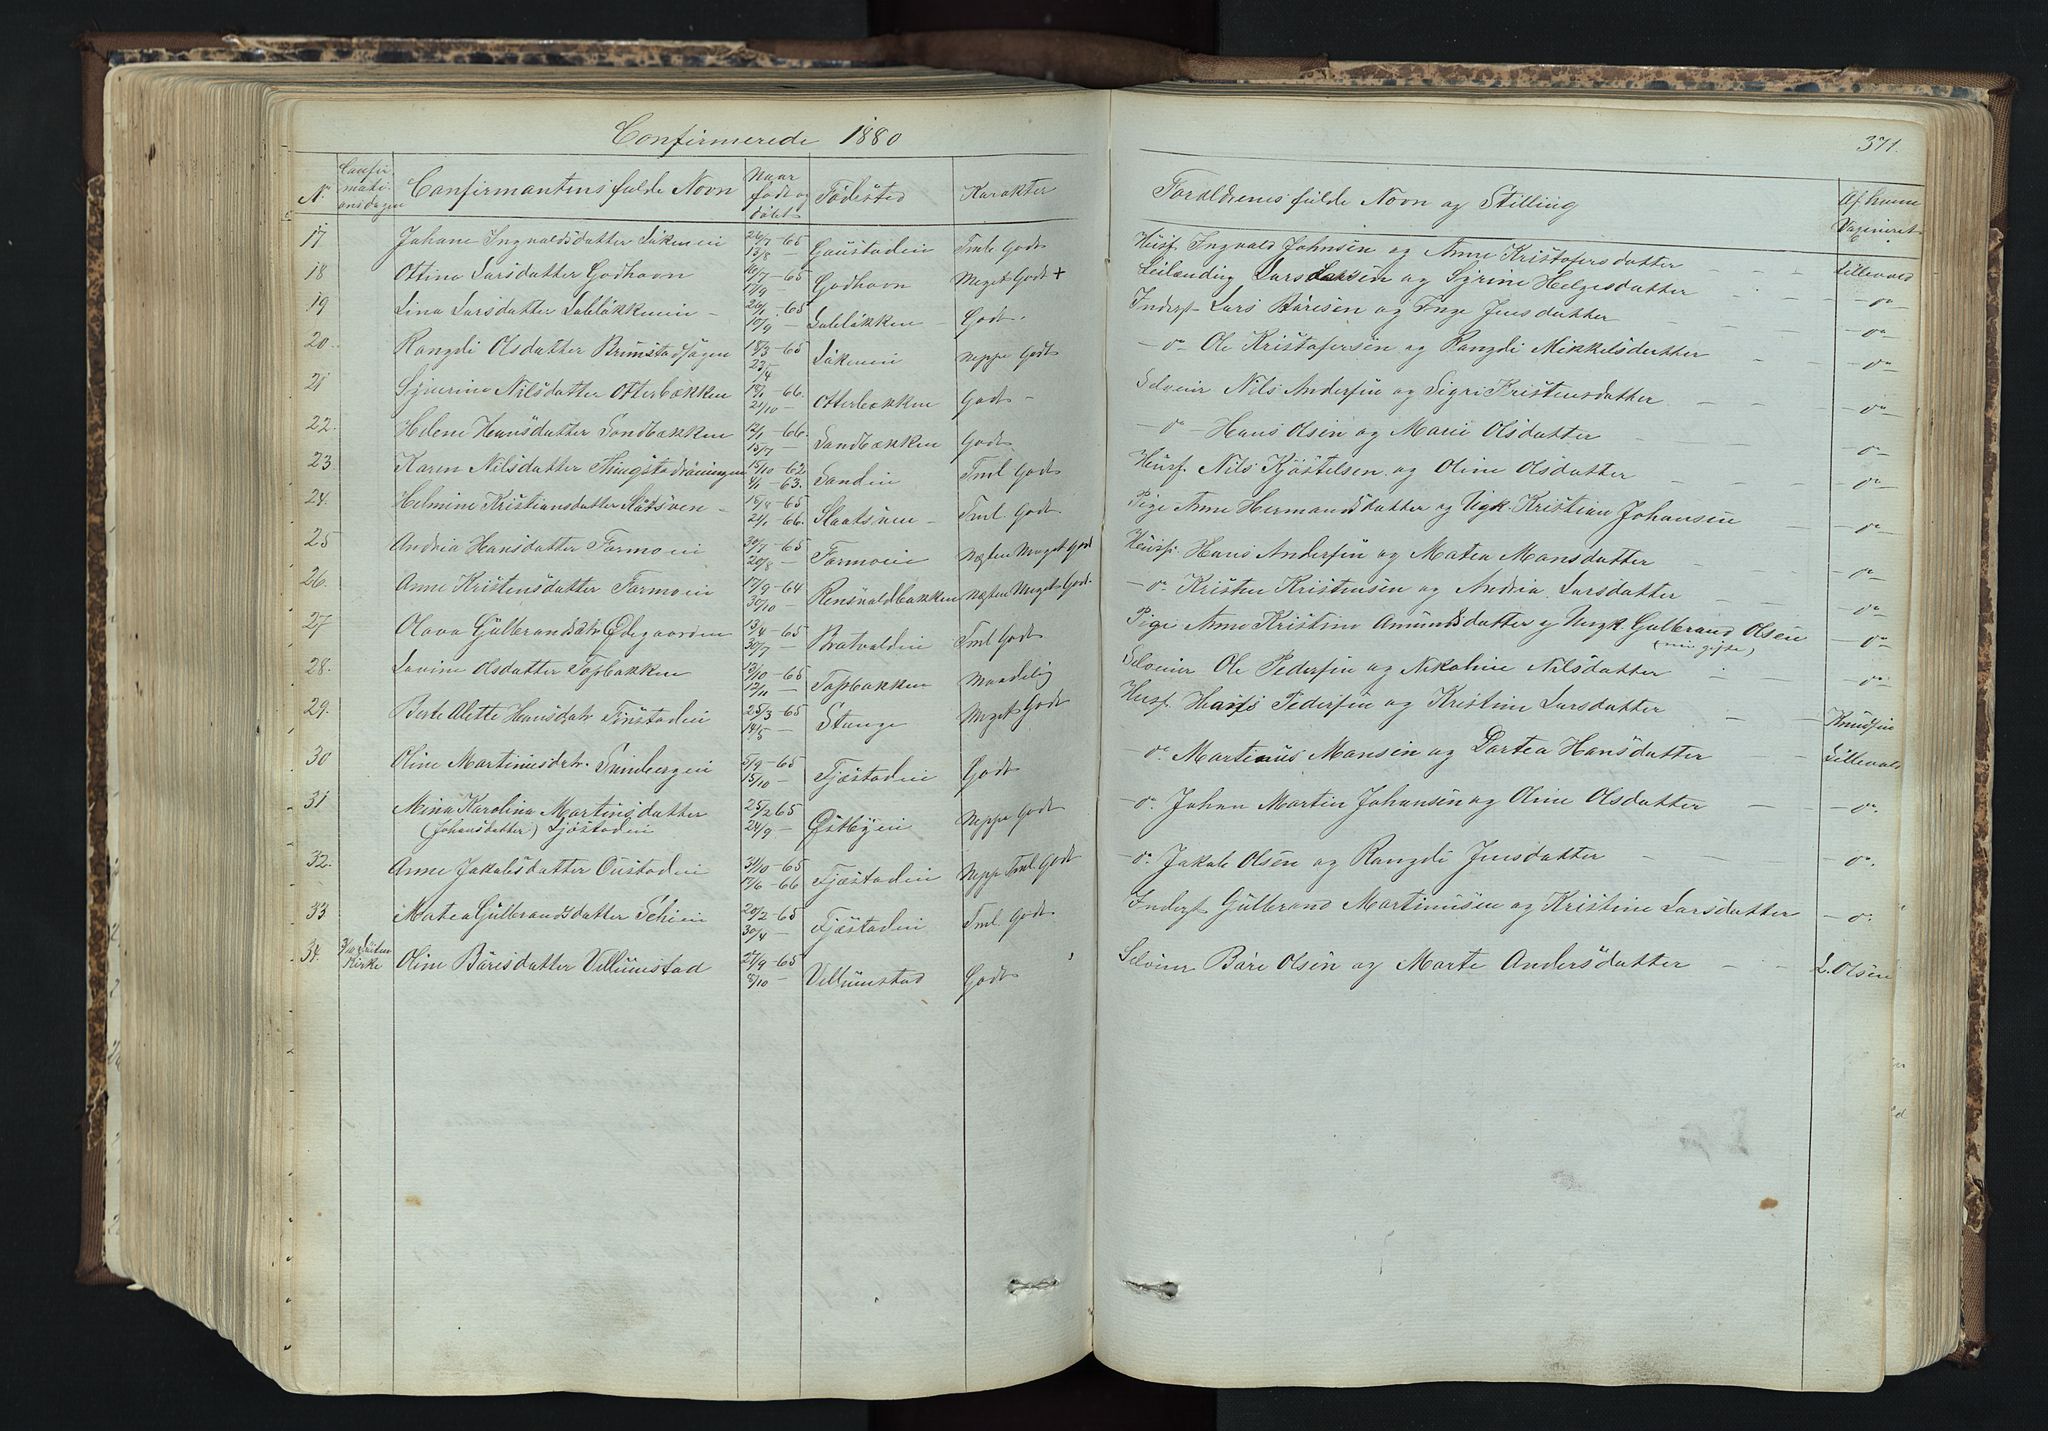 Confirmerede 1880
371.
No. Confirmationsdagen Confirmantens fulde Navn Naar født og døbt Fødested Karakter Forældrenes fulde Navn og Stilling Af hvem Vaccineret
17 Johane Ingvaldsdatter Løkenei 26/7-65 13/8 - Gaustadeie Tml. Godt Husf. Ingvald Johnsen og Anne Kristofersdatter - - Lillevold
18 Ottine Larsdatter Godhavn /7-65 17/9 - Godhavn Meget Godt + Leilænding Lars Larsen og Syrine Helgesdatter - - do
19 Lina Larsdatter Labløkkeneie - 65 10/9 - Labløkken - Godt - Inderst Lars Båresen og Inge Jensdatter - - - do
20. Rangdi Olsdatter Brunstadhagen 18/3-65 23/4 Løkeneie neppe Godt - do Ole Kristofersen og Rangdi Mikkelsdatter - - do
21 Sigurine Nilsdatter Otterbækken 66. 21/10 - Otterbækken Godt - Selveier Nils Andersen og Sigri Kristensdatter - - - do
22. Helene Hansdatter Sandbækken 12/1-66. 15/7 - Sandbækken Godt - do - Hans Olsen og Marie Olsdatter - - do
23 Karen Nilsdatter 13/10-62 4/1-63. Sandeie Tml Godt Husf. Nils Kjøstelsen og Oline Olsdatter - - - do
24. Helmine Kristiansdatter Slåtsven - 18/8-65 21/1-66. Slaatsven - Tml. Godt Pige Anne Hermandsdatter og Ugk. Kristian Johansen - do
25 Andrea Hansdatter Formoeie 30/7-65 20/8 - Formoeie Næsten Meget Godt Husf. Hans Andersen og Matea Hansdatter - - do
26. Anne Kristensdatter Formoeie 17/9-64 30/10 - Rensvoldbakken Næsten Meget Godt. - do. Kristen Kristensen og Andrea Larsdatter - do
27 Olava Gulbrandsdtr Ødegaarden 13/4-65 30/7 - Bratvoldeie Tml Godt Pige Anne Kristine Amundsdatter og Ungk. Gulbrand Olsen - do
(nu gifte)
28. Lovine Olsdatter Topbakken 13/10-65 12/11 - Topbakken Maadelig Selveier Ole Pedersen og Nikoline Nilsdatter - - do
29. Berte Alette Hansdatr 25/3-65 14/5 - Stange Meget Godt Husf. Hans Pedersen og Kristine Larsdatter - - Knudsen
30 Oline Martinusdatr. 5/9-65 15/10 - Fjæstadeie Godt - do. Martinus Hansen og Dortea Hansdatter - - Lillevold
31 Mina Karolina Martinsdatter 25/2 65 24/9 - Østbyeie Neppe Godt - do. Johan Martin Johansen og Oline Olsdatter - - do.
(Johansdatter)
32. Anne Jakobsdatter Oustadeie 31/10-65 17/6-66 Fjæstadeie Neppe Tml. Godt - do. Jakob Olsen og Rangdi Jensdatter - - do.
33 Matea Gulbrandsdatter Schieie 20/2-65 30/4 - Fjæstadeie Tml. Godt Inderst Gulbrand Martinusen og Kristine Larsdatter - do.
34. 3/10 Kirke Oline Båresdatter Villumstad 21/9-65 8/10 - Villumstad Godt Selveier Båre Olsen og Marte Andersdatter - - L. Olsen